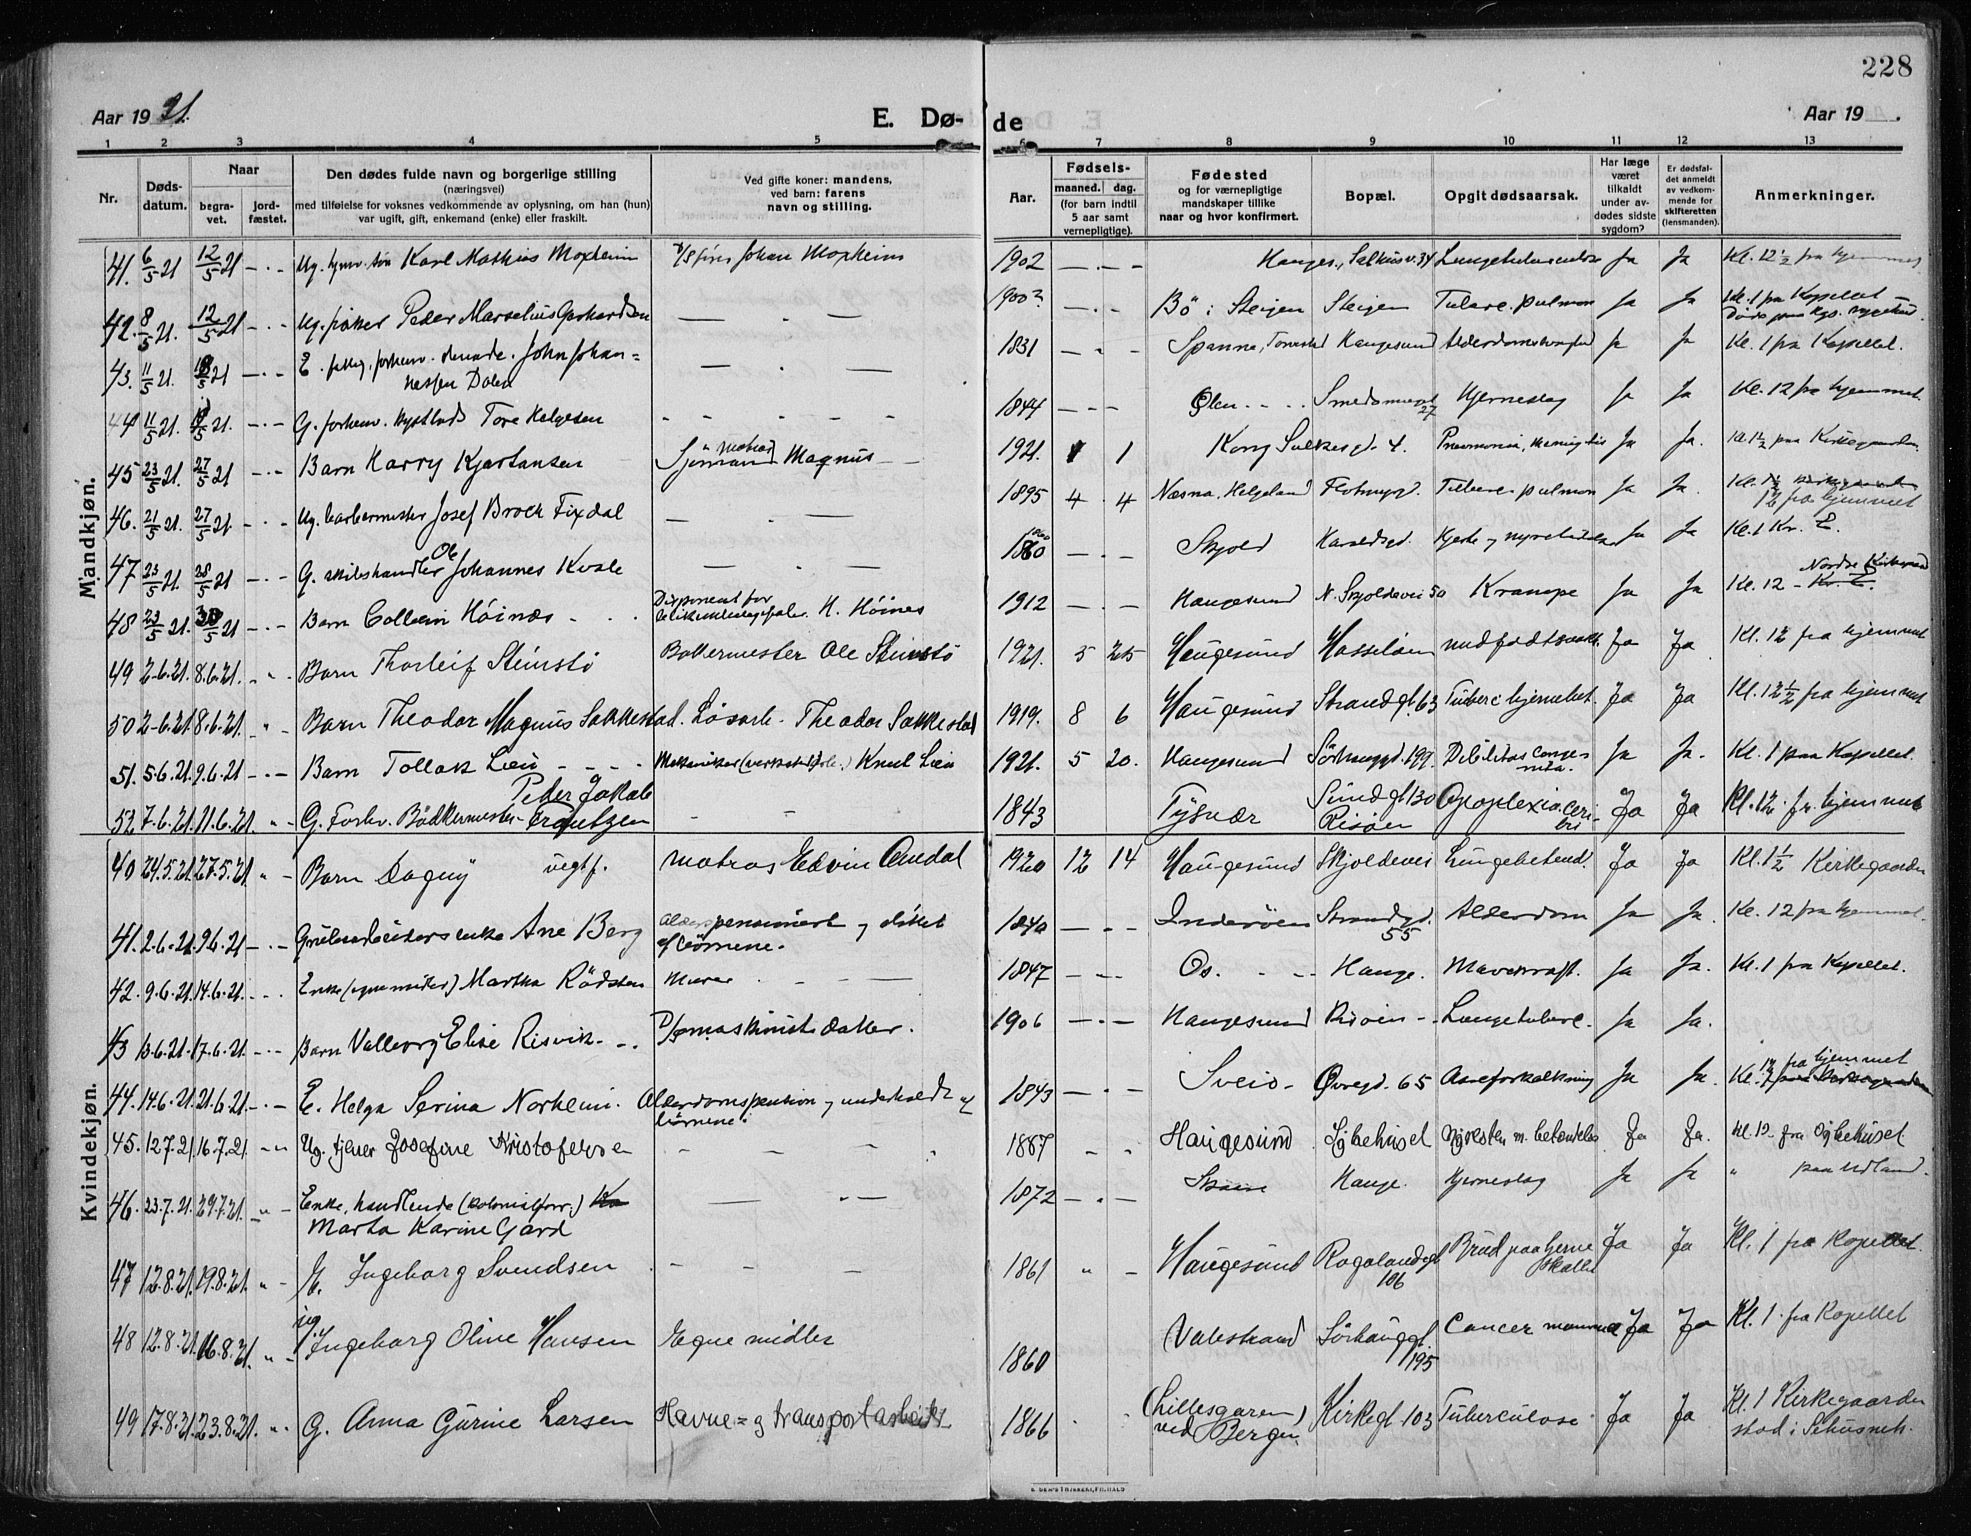 228
Aar 1921.
E. Dø-
de
Aar 19 .
1 2 3 4 5 6 7 8 9 10 11 12 13
Nr.
Døds-
datum.
Naar
begra-
vet.
jord-
fæstet.
Den dødes fulde navn og borgerlige stilling
(næringsvei)
med tilføielse for voksnes vedkommende av oplysning, om han (hun)
var ugift, gift, enkemand (enke) eller fraskilt.
Ved gifte koner: mandens,
ved barn: farens
navn og stilling.
Aar.
Fødsels-
maaned. dag.
(for barn indtil
5 aar samt
vernepligtige).
Fødested
og for værnepligtige
mandskaper tillike
naar og hvor konfirmert.
Bopæl.
Opgit dødsaarsak.
Har læge
været
tilkaldt
under av-
dødes sidste
sygdom?
Er dødsfal-
det anmeldt
av vedkom-
mende for
skifteretten
(lensmanden).
Anmerkninger.
Mandkjøn.
41. 6/5 21 12/5 21 — Ug. hjemv. søn Karl Mathias Moxheim Johan Moxheim 1902 — Hauges., Salhusv. 34 Ja Ja Kl. 12 1/2 fra hjemmet
42. 8/5 21. 12/5 21 — Ug. fisker Peder Marselius Gerhardsen — 1900? — Bö i Steigen Steigen Tuberc. pulmon Ja Ja Kl. 1 fra Kapellet
43. 11/5 21. 21 — John Johan=
nessen Dalen — 1831 — Spanne, Haugesund Ja Ja Kl. 1 fra Kapellet.
44 11/5 21. 21. — G. forhenv. Tore Helgesen 1844 — Ølen Smedasundet
27 Hjerneslag Ja Ja Kl. 12 fra hjemmet.
45 23/5 21. 27/5 21 — Barn Harry Kjartansen Sjömand Matros Magnus — 1921. 1 1 Kong Sulkesgd. 4. Ja Ja. Kl. 1 1/2 paa Kirkegaarden
46. 21/5 21 27/5 21. — Ug. barbermester Josef Brock Fixdal — 1895 4 4 Næsna, Helgeland Flotmygd. Tuberc. pulmon Ja Ja.
fra hjemmet
47 23/5 21. 28/5 21 — G. skibshandler Ole Johannes Kvale — 1860 — Skjold Haraldsgd. Hjerte og Ja Ja Kl. 1 Kr.
48 23/5 21. 30/5 21 — Barn Höinæs Disponent for
H. Höines 1912 — Haugesund N. Skjoldavei 50 Krampe Ja Ja Kl. 12 — Nordre
49 2-6.21. 8.6.21. Barn Thorleif Stenstö Bakermester Ole Stenstö 1921. 5 25 Haugesund Hasseløen medfødt svakh. Ja Ja Kl. 12 fra hjemmet
50 2-6.21 8.6.21. Barn Theodor Magnus Sakkestad. Løsarb. Theodor Sakkestad 1919. 8 6 Haugesund Strandgt. 63 Tuberc. Ja Ja Kl. 12 1/2 fra hjemmet
51. 5.6.21. 9.6.21 — Barn Tollak Lien Knut Lien 1921. 5 20. Haugesund Sörhauggd. 199. Debilitas Conge-
nita. Ja Ja. Kl. 1 paa Kapellet.
52 7-6.21. 11.6.21. G. Forhv. Bødkermester Peder Jakob
Frantzen — 1843 Tysvær Sundgt 130
Risøen Apoplexia cere-
bri Ja Ja Kl. 12 fr. hjemmet
Kvindekjøn.
40 24.5.21. 27.5.21 Barn Dagny uegtf. Matros Edvin Omdal 1920 12 14 Haugesund Skjoldavei Lungebetend. Ja Ja Kl. 1 1/2 Kirkegaarden
41. 2.6.21. 9.6.21 — enke Ane Berg Alderspensionert og støttet
af børnene. 1840 — Inderøen Strandgd.
55 Alderdom Ja Ja. Kl. 12 fra hjemmet.
42. 9.6.21. 14.6.21. Enke (egne midler) Martha Rödsten Murer — 1847 — Os. Hauge. Mavekræft. Ja Ja. Kl. 1 fra Kapellet.
43 13.6.21. 17.6.21. — Barn Valborg Elise Risvik maskinist datter. 1906 — Haugesund Risøen Lungetuberc. Ja Ja.
44. 14.6.21. 21.6.21. — E. Helga Serina Norheim. Alderdomspension og underholdt af
børnene. 1843 — Sveio Øvregd. 65 Aareforkalkning Ja Ja. Kl. 12 fra hjemmet
45. 12.7.21. 16.7.21. Ug. tjener Josefine Kristofersen 1887 Haugesund Sykehuset Nyresten m. betændelse Ja Ja. Kl. 12 fra Sykehuset
46. 23.7.21. 29.7.21. Enke, handlende (kolonialforr.)
Marta Karine Gard — 1872 — Skåre Hauge. Hjerneslag Ja Ja " paa Udland.
47 12.8.21. 19.8.21. Ingeborg Svendsen 1861 Haugesund Rogalandsgt
106 Brud paa hjerne
skallen Ja Ja Kl. 1 fra Kapellet.
48 12.8.21. 16.8.21. ug. Ingeborg Oline Hansen Egne midler 1860 Valestrand Sörhauggt.
195 Cancer mammae Ja Ja Kl. 1. fra Kapellet
49 17.8.21. 23.8.21. G. Anna Gurine Larsen Havne= og transportarbeider 1866 (Lillesgaren)
ved Bergen. Kirkegt 103 Tuberculose Ja Ja Kl. 1 Kirkegaarden